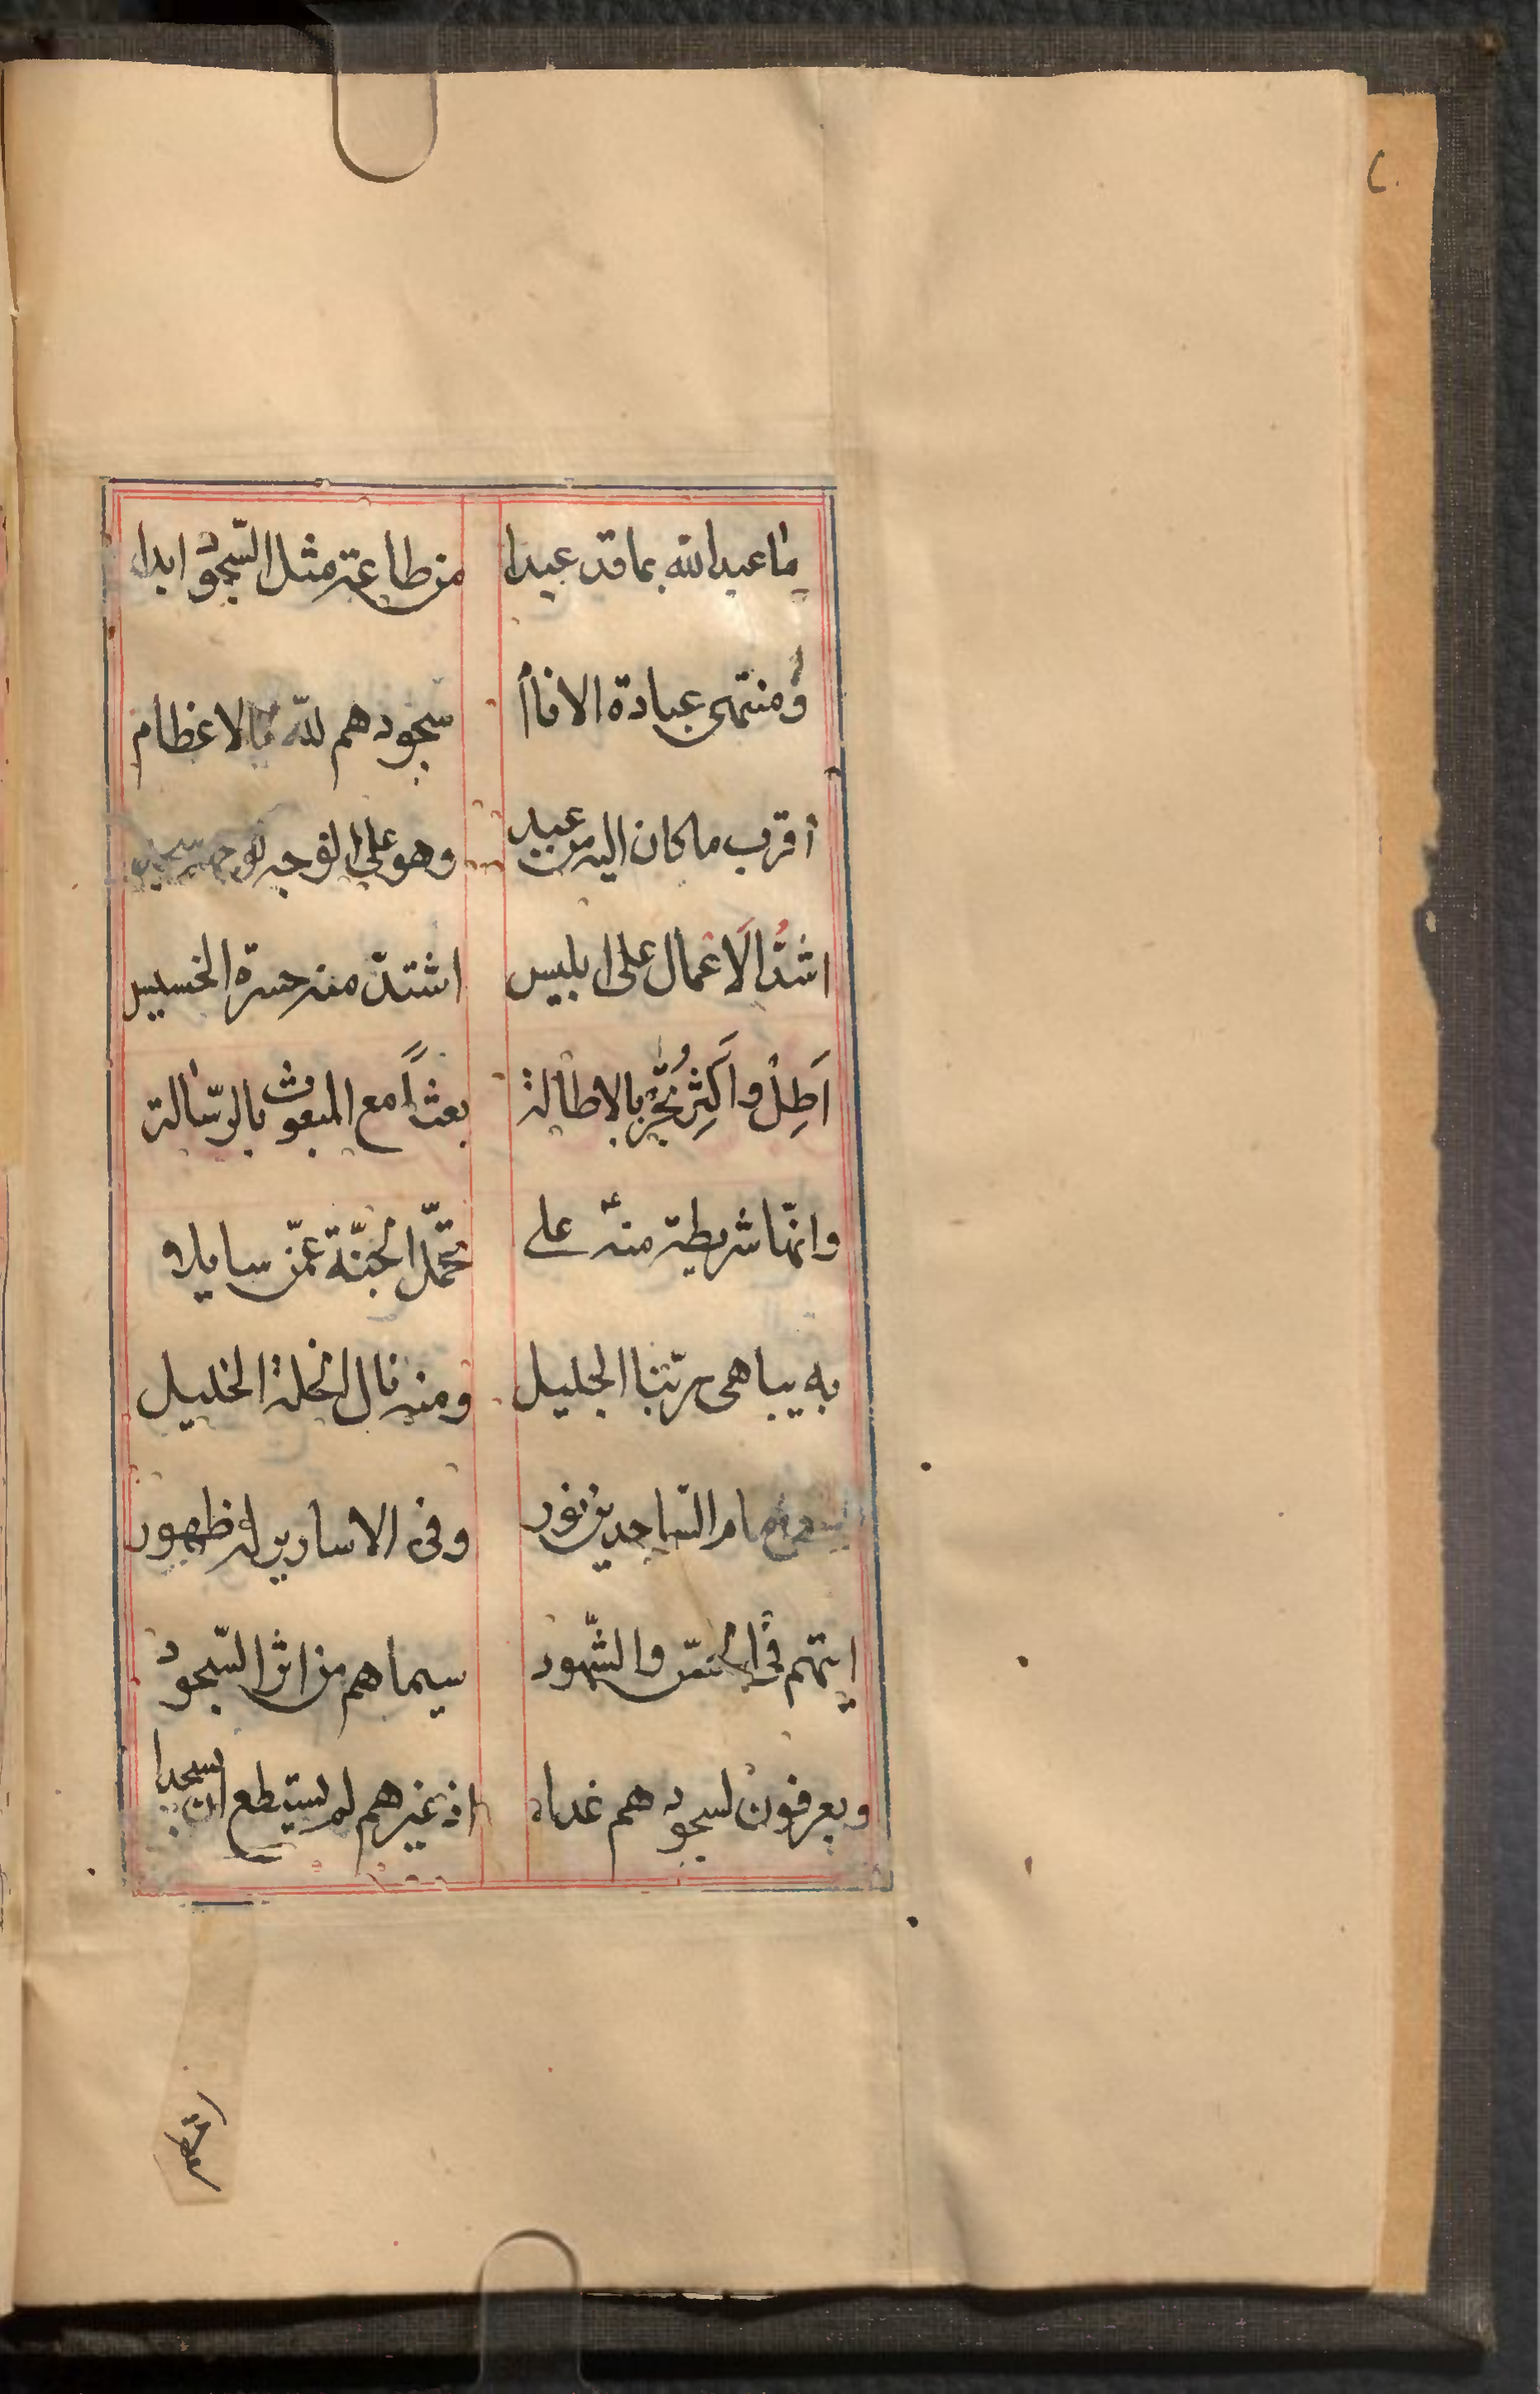 ما عبد الله بما قد عبدا من طاعة مثل السّجود ابدا
ومنتهى عبادة الانام سجودهم للّه بالاعظام
أقرب ما كان اليه من عبد وهو على الوجه لوجهه سجد
اشدُّ الَاعْمال على ابليس اشتدّت منه حسرة الخسيس
اَطِلْ واَكثِرْ تُخَّر بالاطالة بعثاً مع المبعوث بالرّسالة
وانّها شريطة منه على تحمّل الجنّة عمّن سايلا
به يباهى ربّنا الجليل ومنه نال الخلة الخليل
يسعى امام السّاجدين نور وفى الاسارير له ظهور
ايتهم فى الحسّ والشّهود سيماهم من اثر السّجود
ويعرفون لسجودهم غدا اذ غيرهم لم يستطع ان يسجدا